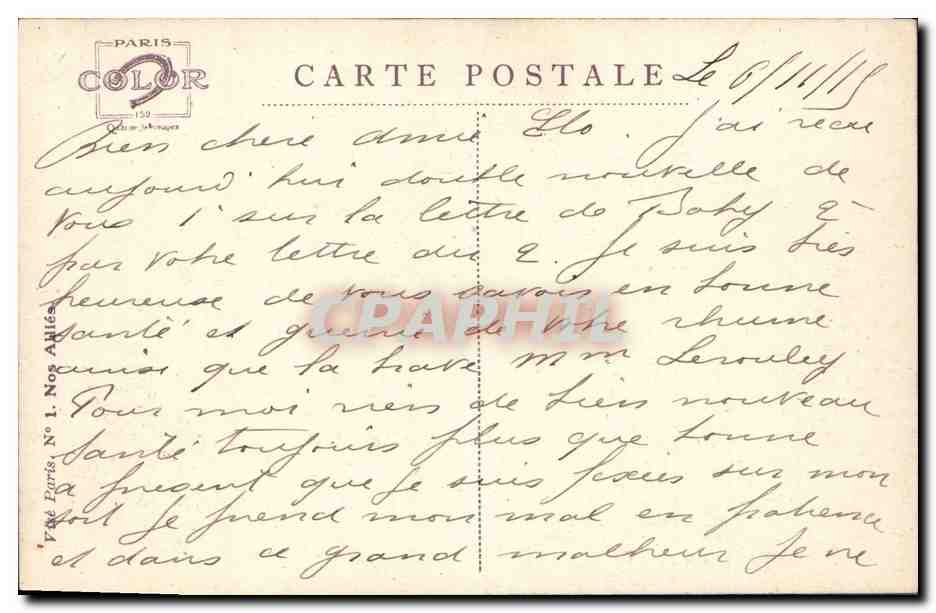 PARIS
COLOR
152
Quai de Jemmapes
CARTE POSTALE
Le 6/11/15
Bien chere amie Flo. J'ai recue
aujourd'hui double nouvelle de
vous 1° sur la lettre de Baby 2°
par votre lettre du 2. Je suis très
heureuse de vous savoir en bonne
santé et guerrie de votre rhume
ainsi que la brave Mme
Pour moi rien de bien nouveau
santé toujours plus que bonne
a present que je suis fixées sur mon
sort je prend mon mal en patience
et dans ce grand malheur je ne
Visé Paris, N° 1. Nos Alliés
CPAPHIL